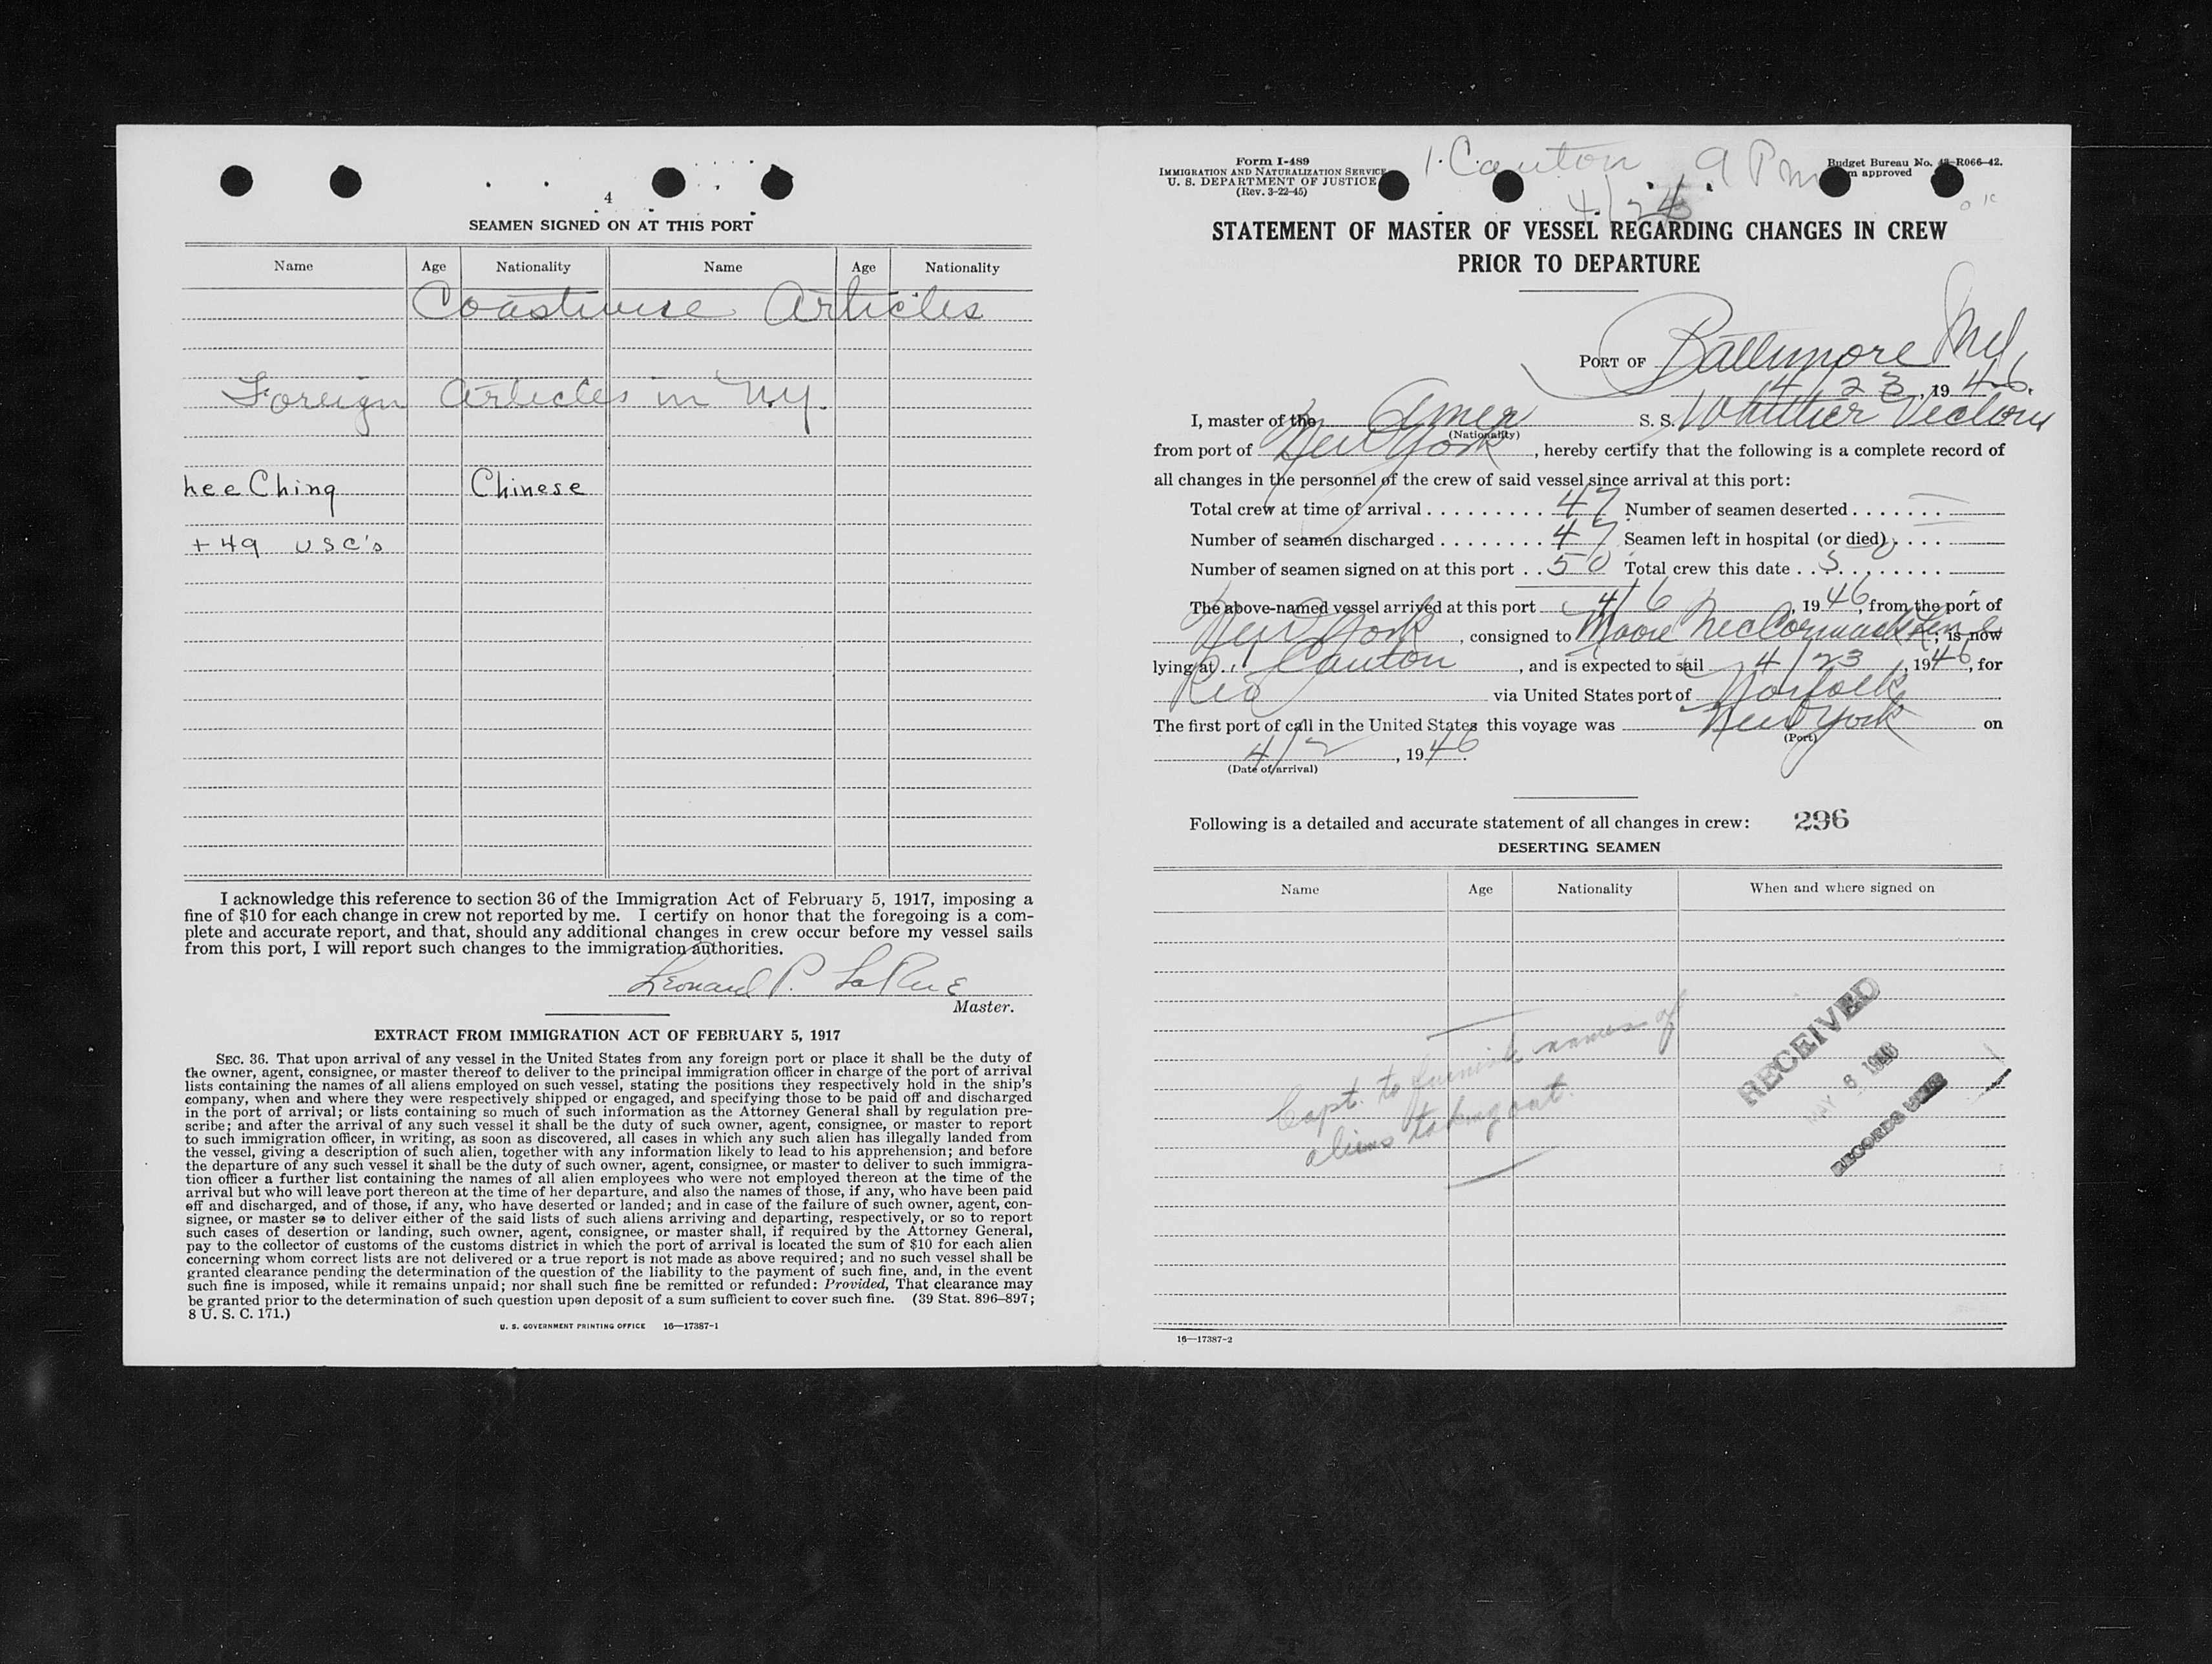 4
SEAMEN SIGNED ON AT THIS PORT
Name Age Nationality Name Age Nationality
Coastwise Articles
Foreign Articles in N.Y.
Lee Ching Chinese
+ 49 USC's
I acknowledge this reference to section 36 of the Immigration Act of February 5, 1917, imposing a
fine of $10 for each change in crew not reported by me. I certify on honor that the foregoing is a com-
plete and accurate report, and that, should any additional changes in crew occur before my vessel sails
from this port, I will report such changes to the immigration authorities.
Leonard P. LaRue
Master.
EXTRACT FROM IMMIGRATION ACT OF FEBRUARY 5, 1917
SEC. 36. That upon arrival of any vessel in the United States from any foreign port or place it shall be the duty of
the owner, agent, consignee, or master thereof to deliver to the principal immigration officer in charge of the port of arrival
lists containing the names of all aliens employed on such vessel, stating the positions they respectively hold in the ship's
company, when and where they were respectively shipped or engaged, and specifying those to be paid off and discharged
in the port of arrival; or lists containing so much of such information as the Attorney General shall by regulation pre-
scribe; and after the arrival of any such vessel it shall be the duty of such owner, agent, consignee, or master to report
to such immigration officer, in writing, as soon as discovered, all cases in which any such alien has illegally landed from
the vessel, giving a description of such alien, together with any information likely to lead to his apprehension; and before
the departure of any such vessel it shall be the duty of such owner, agent, consignee, or master to deliver to such immigra-
tion officer a further list containing the names of all alien employees who were not employed thereon at the time of the
arrival but who will leave port thereon at the time of her departure, and also the names of those, if any, who have been paid
off and discharged, and of those, if any, who have deserted or landed; and in case of the failure of such owner, agent, con-
signee, or master so to deliver either of the said lists of such aliens arriving and departing, respectively, or so to report
such cases of desertion or landing, such owner, agent, consignee, or master shall, if required by the Attorney General,
pay to the collector of customs of the customs district in which the port of arrival is located the sum of $10 for each alien
concerning whom correct lists are not delivered or a true report is not made as above required; and no such vessel shall be
granted clearance pending the determination of the question of the liability to the payment of such fine, and, in the event
such fine is imposed, while it remains unpaid; nor shall such fine be remitted or refunded: Provided, That clearance may
be granted prior to the determination of such question upon deposit of a sum sufficient to cover such fine. (39 Stat. 896–897;
8 U. S. C. 171.)
U. S. GOVERNMENT PRINTING OFFICE 16—17387-1
Form I-489
IMMIGRATION AND NATURALIZATION SERVICE
U. S. DEPARTMENT OF JUSTICE
(Rev. 3-22-45)
1. Canton 9 Pm
4/24
Budget Bureau No. R066-42.
approved
OK
STATEMENT OF MASTER OF VESSEL REGARDING CHANGES IN CREW
PRIOR TO DEPARTURE
PORT OF Baltimore Md,
4/23, 1946.
I, master of the Amer S. S. Whittier Victory
(Nationality)
from port of New York, hereby certify that the following is a complete record of
all changes in the personnel of the crew of said vessel since arrival at this port:
Total crew at time of arrival 47 Number of seamen deserted —
Number of seamen discharged 47 Seamen left in hospital (or died)
Number of seamen signed on at this port 50 Total crew this date
The above-named vessel arrived at this port 4/6, 1946, from the port of
New York, consigned to Moore McCormack Line; is now
lying at Canton, and is expected to sail 4/23, 1946, for
Rio via United States port of Norfolk
The first port of call in the United States this voyage was New York on
(Port)
4/2, 1946.
(Date of arrival)
Following is a detailed and accurate statement of all changes in crew: 296
DESERTING SEAMEN
Name Age Nationality When and where signed on
Capt. to furnish names of
aliens taking out.
RECEIVED
MAY 8 1946
RECORDS
16—17387-2